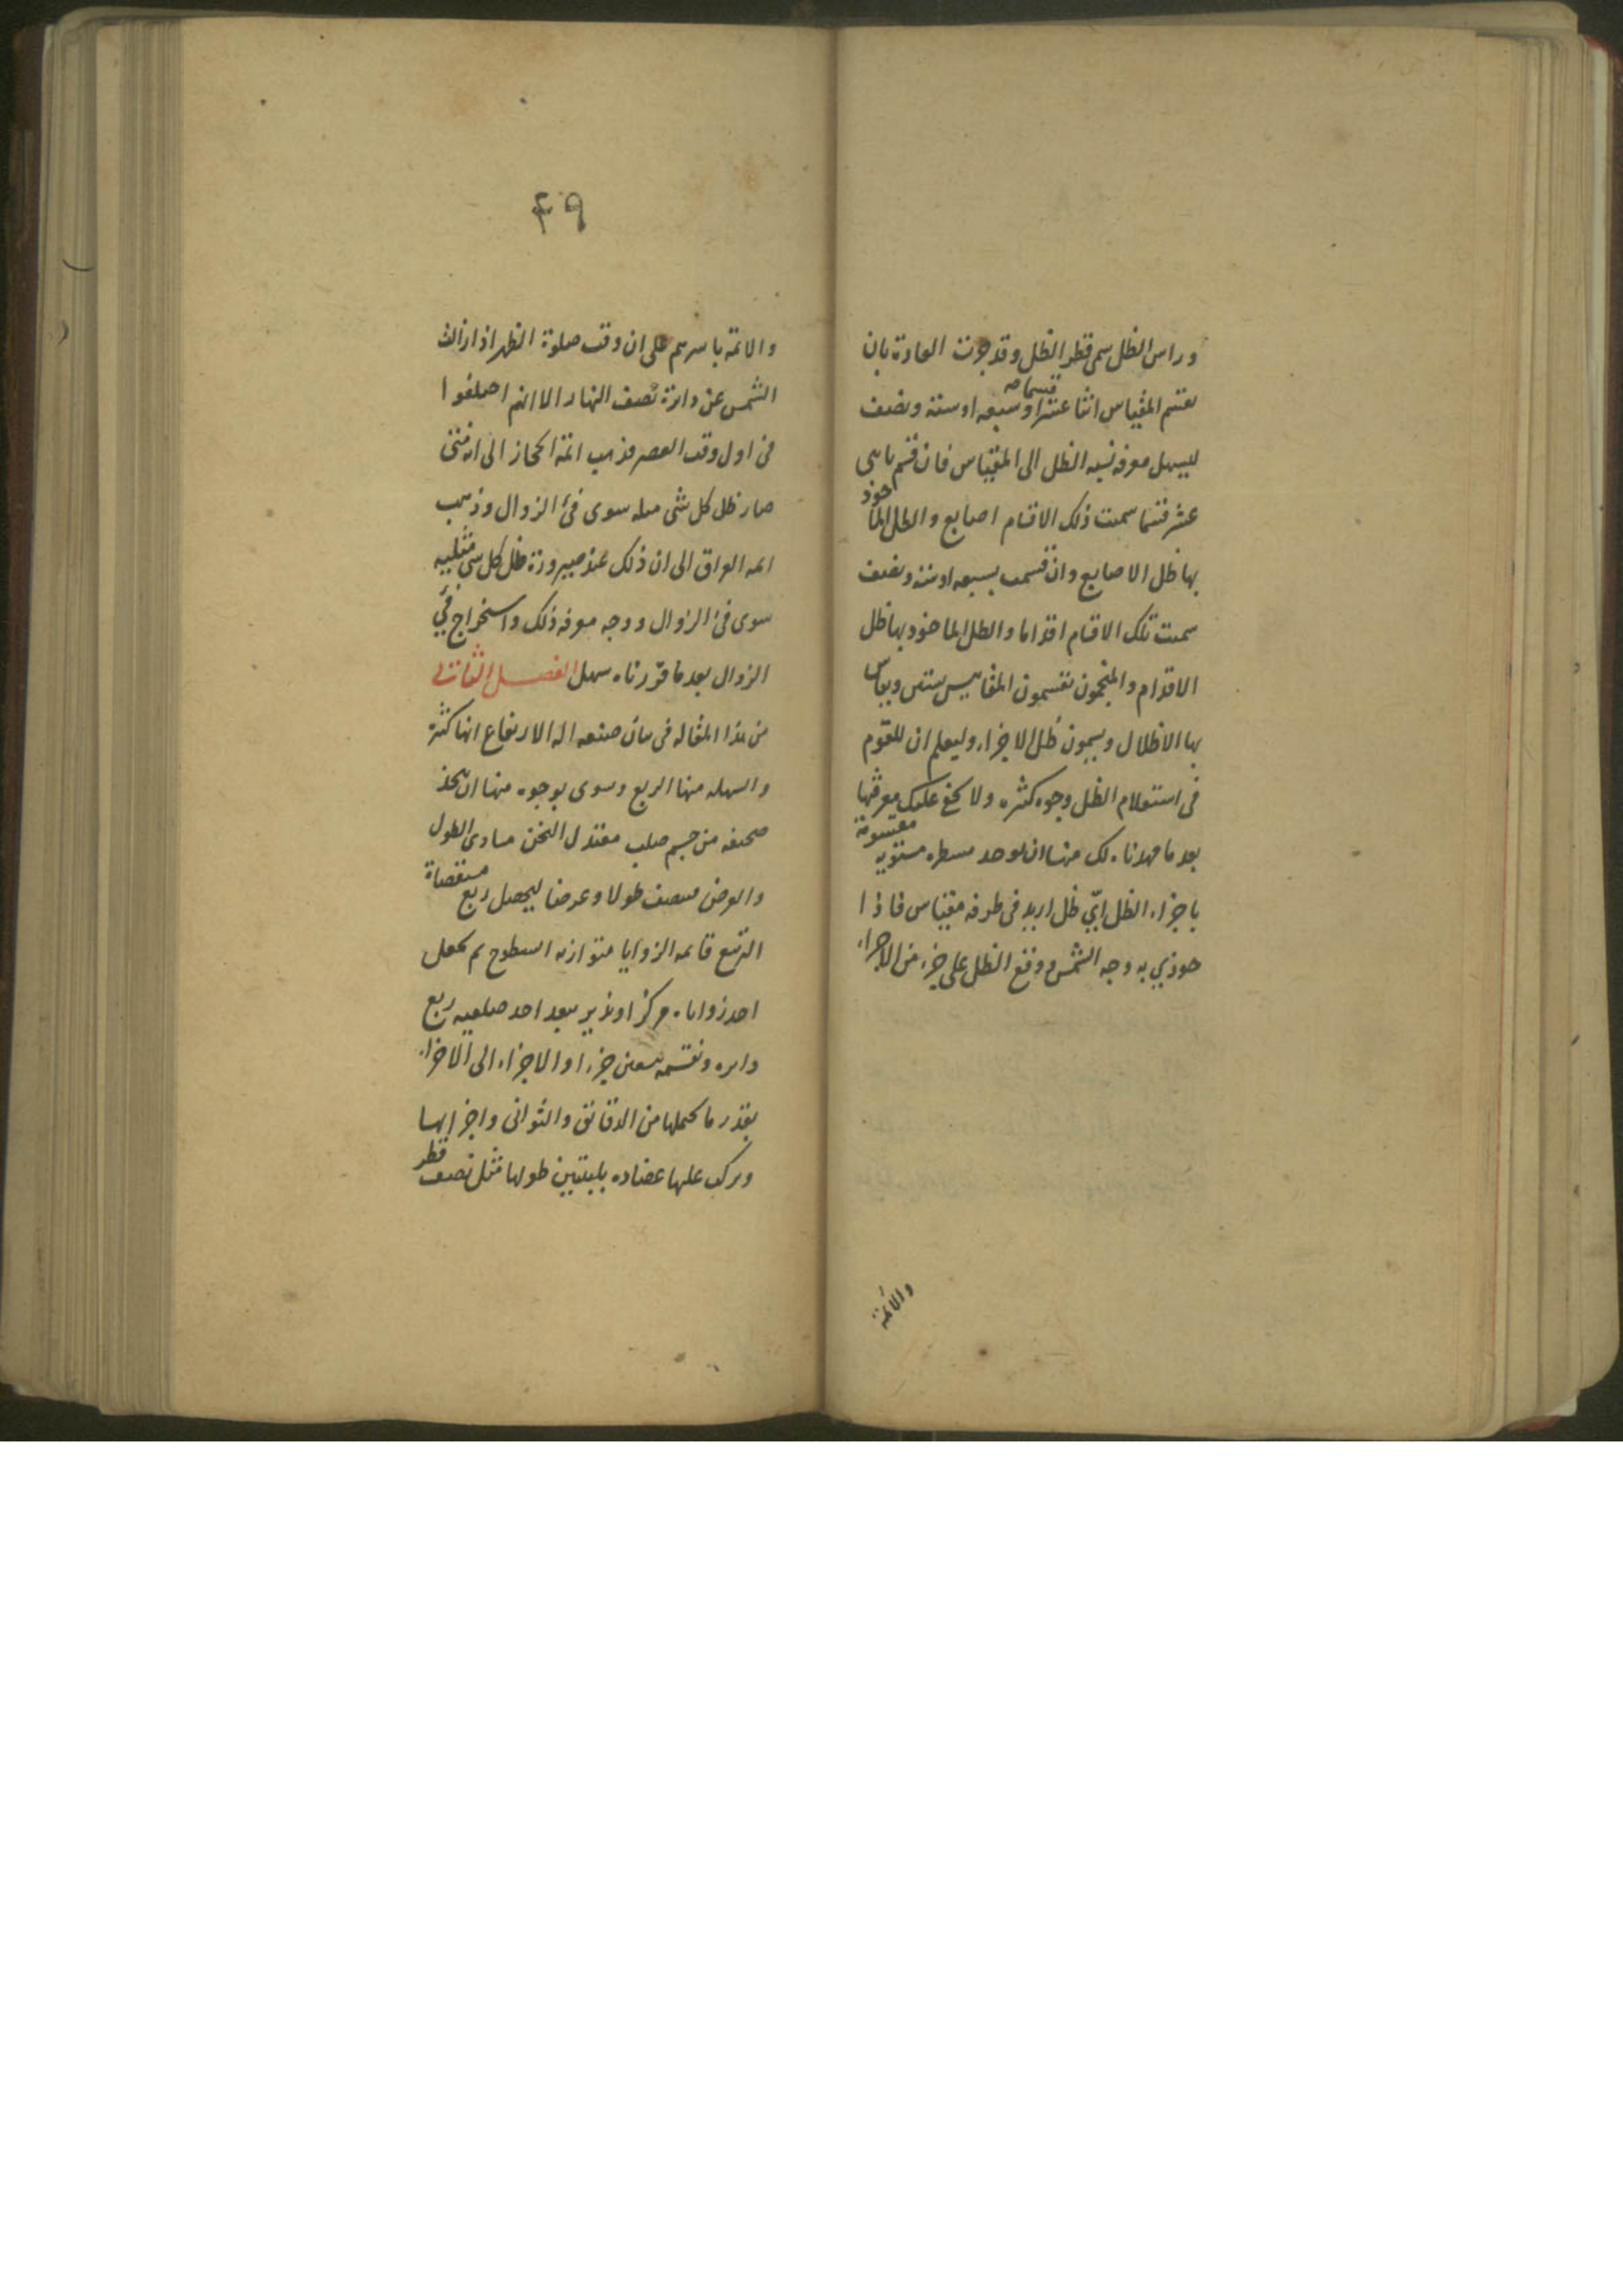 وراس الظل سمى قطر الظل وقد جرت العادة بان
يقسم المقياس اثنا عشر قسما او سبعه او ستة ونصف
ليسهل معرفه نسبه الظل الى المقياس فان قسم باثنى
عشر قسما سميت ذلك الاقسام اصابع والظل الماخوذ
بها ظل الاصابع وان قسمت بسبعه او ستة ونصف
سميت تلك الاقسام اقداما والظل الماخوذ بها ظل
الاقدام والمنجمون يقسمون المقاييس بستين ويقاس
بها الاظلال ويسمون ظل الاجزاء وليعلم ان للقوم
فى استعلام الظل وجوه كثيره ولا يخفى عليك معرفتها
بعد ما مهدناه لك منها ان يوجد مسطره مستويه مقسومة
باجزاء الظل ايّ ظل اريد فى طرفه مقياس فاذا
حوذي به وجه الشمس ووقع الظل على جزء من الاجزاء
والائمة
٤٩
والائمة باسرهم على ان وقت صلوة الظهر اذا زالت
الشمس عن دائرة نصف النهار الا انهم اختلفوا
فى اول وقت العصر فذهب ائمة الحجاز الى انه متى
صار ظل كل شى مثله سوى فئ الزوال وذهب
ائمه العراق الى ان ذلك عند صيرورة ظل كل شى مثليه
سوى فئ الزوال ووجه معرفه ذلك واستخراج فئ
الزوال بعد ما قرّرناه سهل الفصل الثانى
من هذا المقاله فى بيان صنعه اله الارتفاع انها كثيرة
والسهله منها الربع وسوى بوجوه منها ان يتخذ
صحيفه من جسم صلب معتدل الثخن مساوى الطول
والعرض منصف طولا وعرضا ليحصل ربع مستقصاة
التربيع قايمه الزوايا متوازيه السطوح ثم يجعل
احد زواياه مركز او ندير ببعد احد ضلعيه ربع
دايره ونقسمه بتسعين جزءا والاجزاء الى الاجزاء
بقدر ما يحملها من الدقائق والثوانى واجزايها
ويركب عليها عضاده بلبنتين طولها مثل نصف قطر